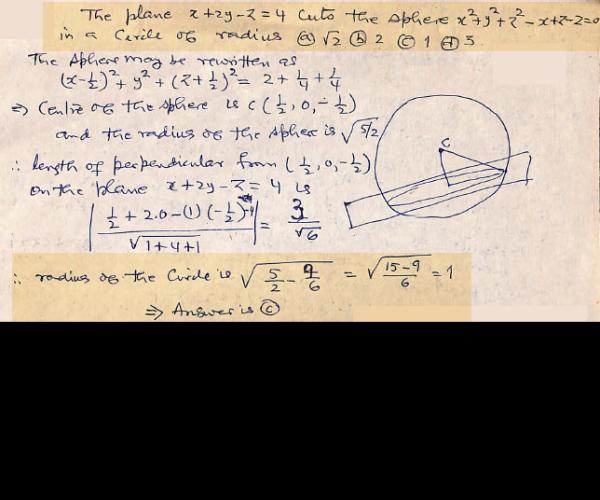 The plane x+2y-z=4 cuts the sphere x²+y²+z²-x+z-2=0
in a Circle of radius ⓐ √2 ⓑ 2 ⓒ 1 ⓓ 3.
The sphere may be rewritten as
(x-1/2)²+y²+(z+1/2)² = 2+1/4+1/4
⇒ Centre of the sphere is C(1/2, 0, -1/2)
and the radius of the sphere is √5/2
∴ length of perpendicular from (1/2, 0, -1/2)
on the plane x+2y-z=4 is
|(1/2+2.0-(1)(-1/2)-4)/√1+4+1| = 3/√6
∴ radius of the Circle is √(5/2-9/6) = √(15-9/6) = 1
⇒ Answer is ⓒ
C